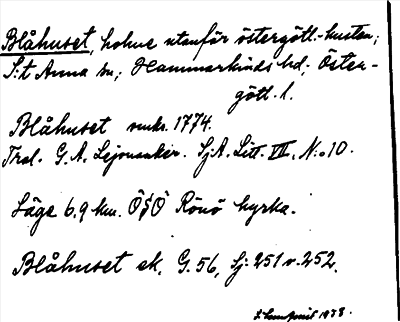 Blåhuset, holme utanför östergötl.-kusten;
S:t Anna sn; Hammarkinds hd; Öster-
götl. l.
Blåhuset omkr. 1774.
Trol. G. A. Lejonanker. Sj.A. Litt. VII. N:o 10.
Läge 6,9 km. ÖSÖ Rönö kyrka.
Blåhuset ek. G. 56, Sj: 251 v. 252.
1938.